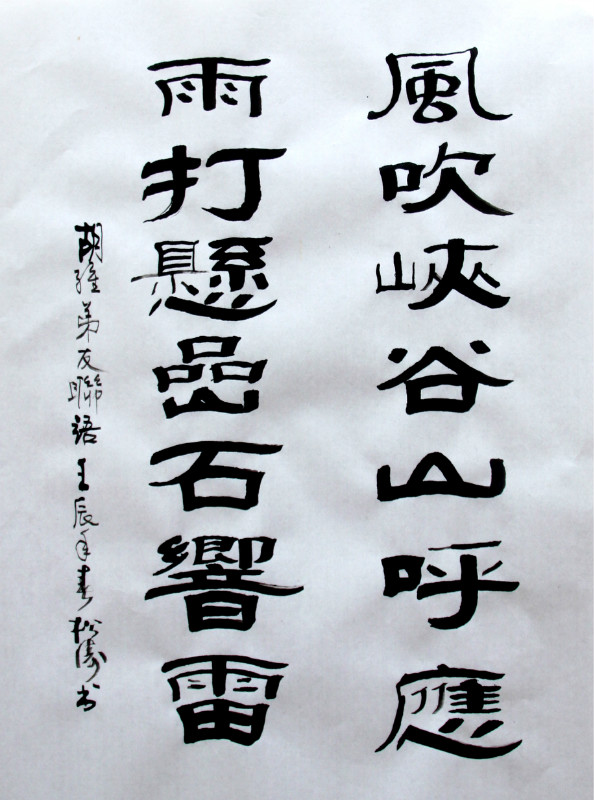 風吹峽谷山呼應
雨打懸嵒石響雷
胡維弟友聯語壬辰年春松濤书